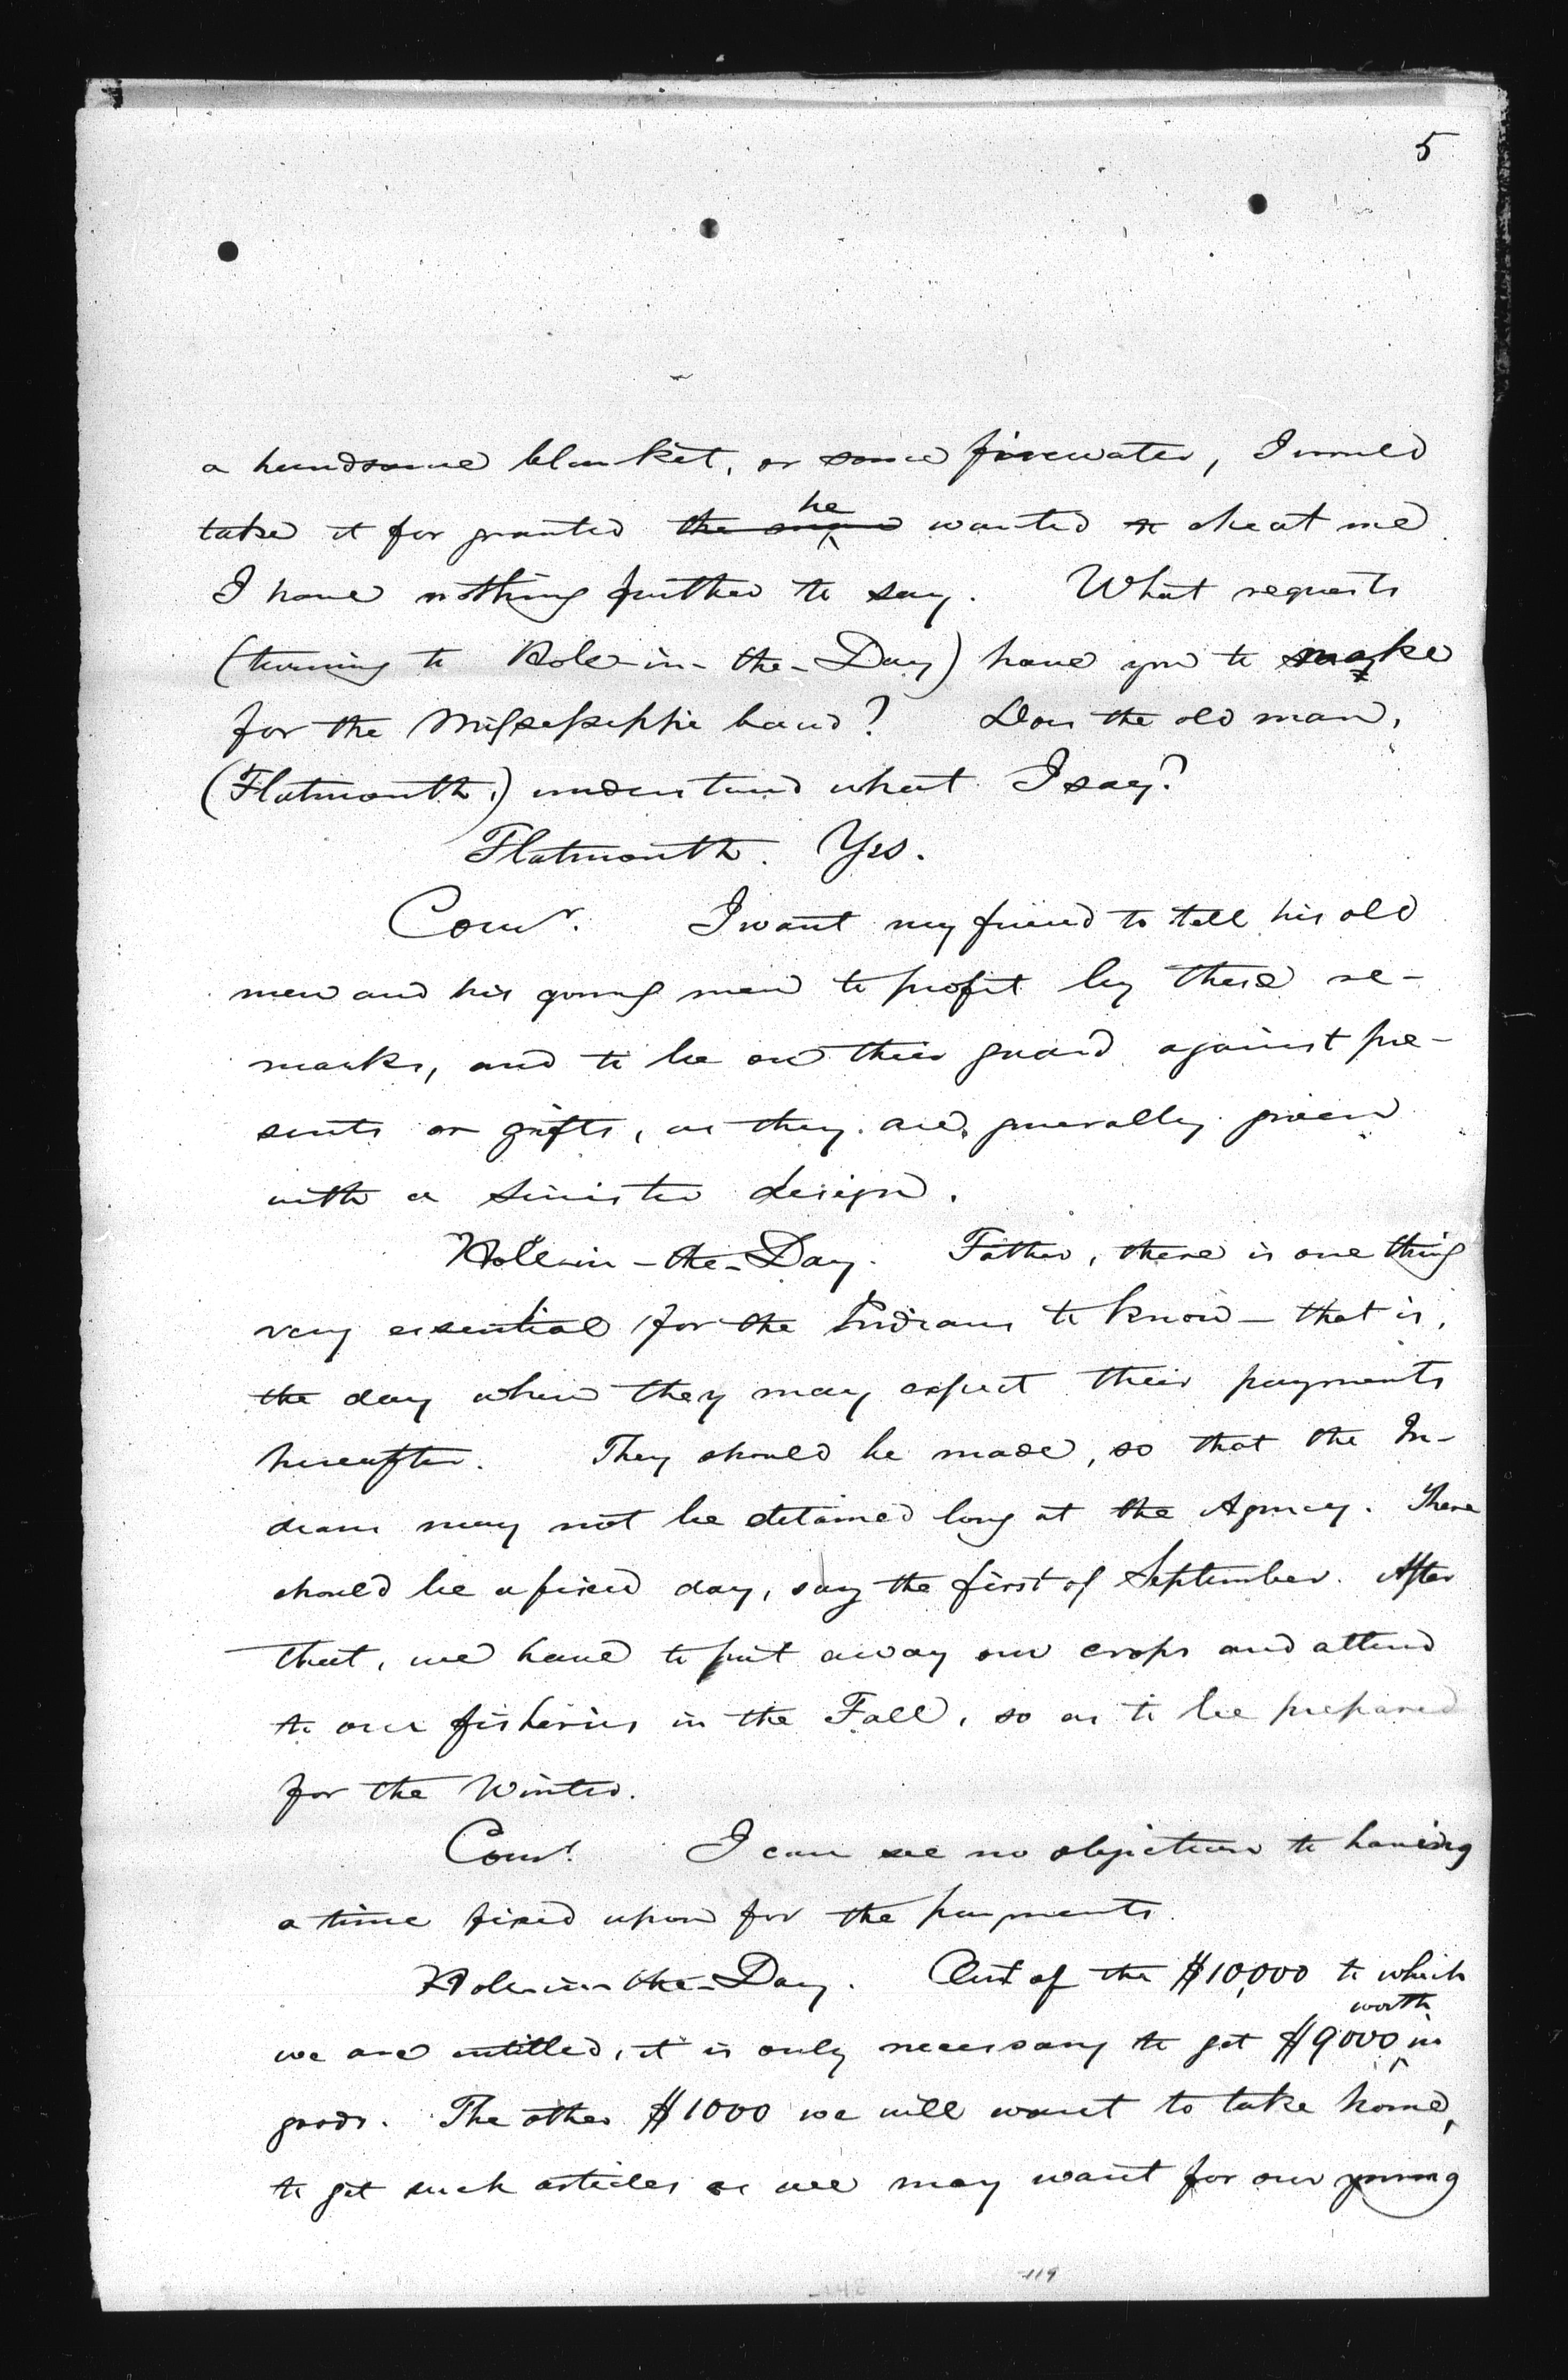 5
a handsome blanket, or some firewater, I would
take it for granted he wanted to cheat me.
I have nothing further to say. What requests
(turning to Hole-in-the-Day) have you to make
for the Mississippi band? Does the old man,
(Flatmouth,) understand what I say?
Flatmouth. Yes.
Comr. I want my friend to tell his old
men and his young men to profit by these re-
marks, and to be on their guard against pre-
sents or gifts, as they are generally given
with a sinister design.
Hole-in-the-Day. Father, there is one thing
very essential for the Indians to know – that is,
the day when they may expect their payments
hereafter. They should be made, so that the In-
dians may not be detained long at the Agency. There
should be a fixed day, say the first of September. After
that, we have to put away our crops and attend
to our fisheries in the Fall, so as to be prepared
for the Winter.
Comr. I can see no objection to having
a time fixed upon for the payments.
Hole-in-the-Day. Out of the $10,000 to which
we are entitled, it is only necessary to get $9000 worth in
goods. The other $1000 we will want to take home,
to get such articles as we may want for our young
119